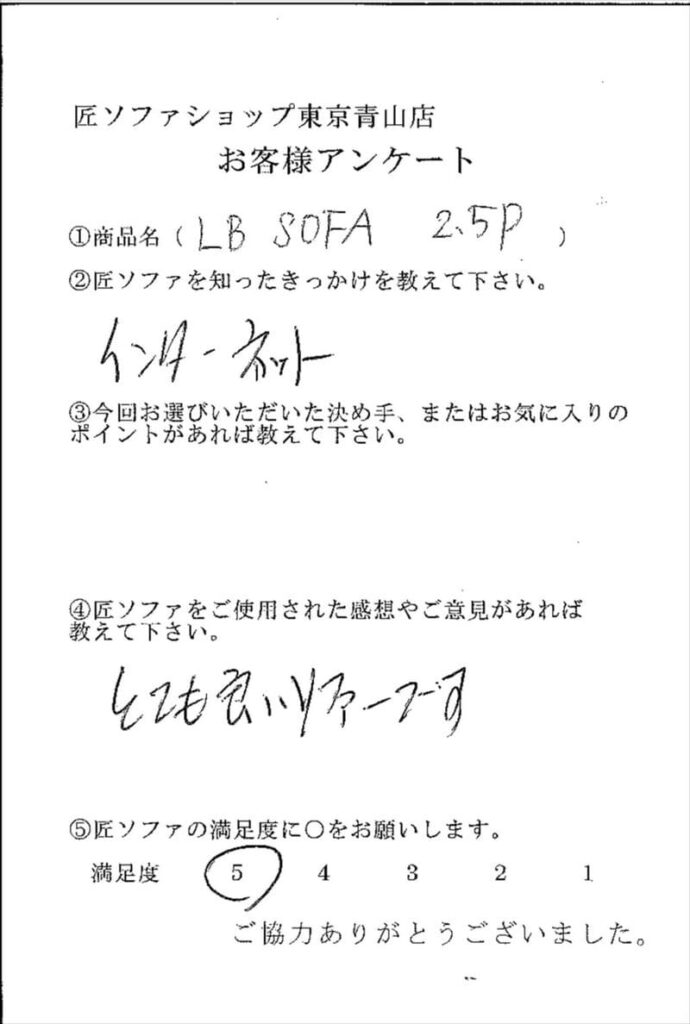 匠ソファショップ東京青山店
お客様アンケート
①商品名（ LB SOFA 2.5P ）
②匠ソファを知ったきっかけを教えて下さい。
インターネット
③今回お選びいただいた決め手、またはお気に入りの
ポイントがあれば教えて下さい。
④匠ソファをご使用された感想やご意見があれば
教えて下さい。
とても良いソファーです
⑤匠ソファの満足度に○をお願いします。
満足度 5 4 3 2 1
ご協力ありがとうございました。